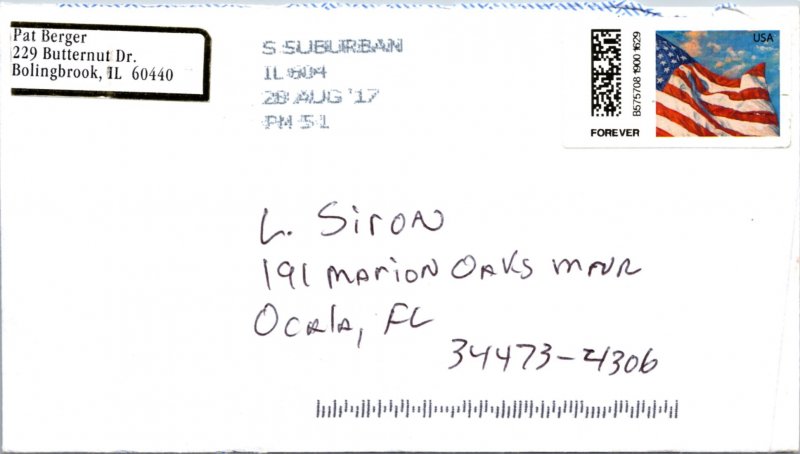 Pat Berger
229 Butternut Dr.
Bolingbrook, IL 60440
S SUBURBAN
IL 604
28 AUG '17
PM 5 1
USA
B575708 1900 1629
FOREVER
L. Siron
191 Marion Oaks
Ocala, FL
34473-4306